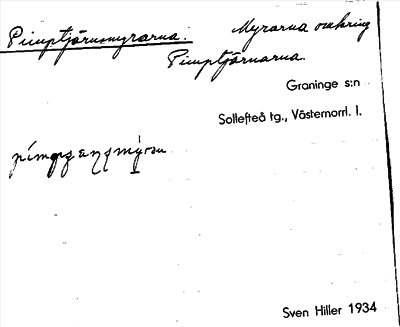 Pimptjärnmyrarna. Myrarna omkring
Pimptjärnarna.
Graninge s:n
Sollefteå tg., Västernorrl. l.
Sven Hiller 1934